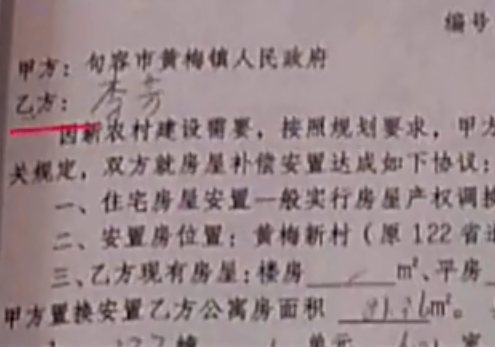 编号
甲方：句容市黄梅镇人民政府
乙方：李芳
因新农村建设需要，按照规划要求，甲方
关规定，双方就房屋补偿安置达成如下协议：
一、住宅房屋安置一般实行房屋产权调换
二、安置房位置：黄梅新村（原122省道
三、乙方现有房屋：楼房 m²、平房
甲方置换安置乙方公寓房面积 m²。
幢 单元 室